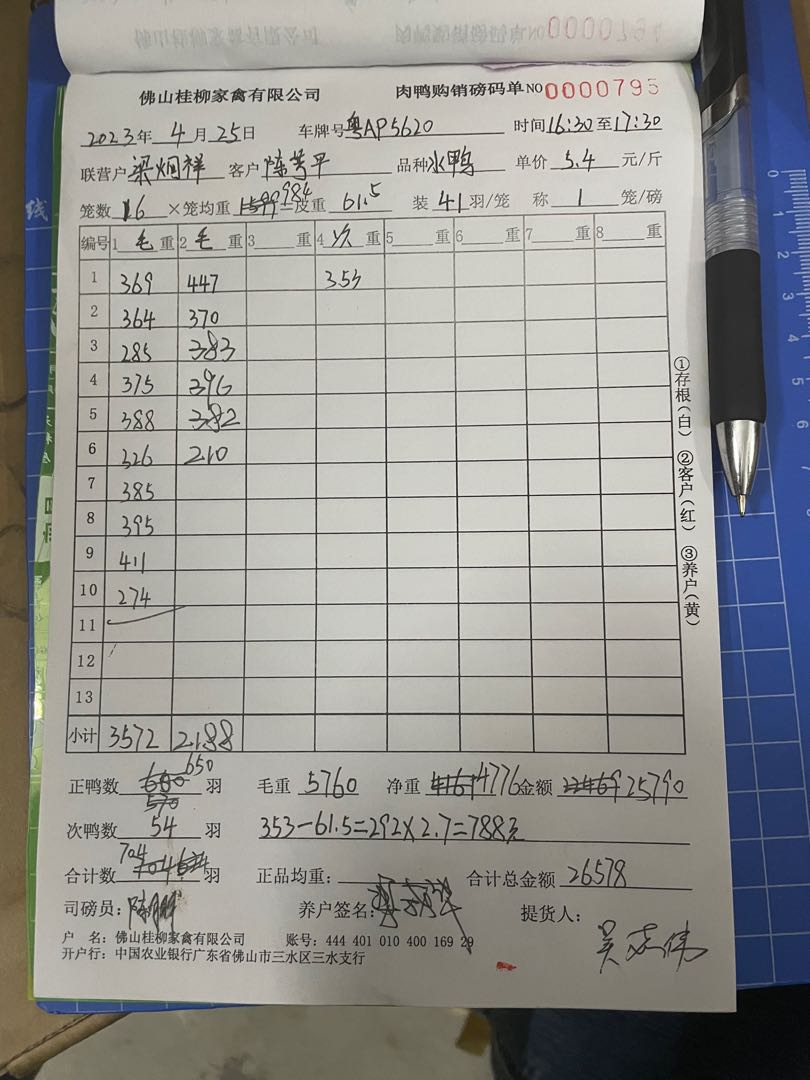 佛山桂柳家禽有限公司 肉鸭购销磅码单 NO 0000795
2023年 4月 25日 车牌号 粤AP5620 时间 16:30至17:30
联营户 梁炯祥 客户 陈 平 品种 水鸭 单价 5.4 元/斤
笼数 16 ×笼均重 984 皮重 61.5 装 41 羽/笼 称 1 笼/磅
编号 1 毛 重 2 毛 重 3 重 4 次 重 5 重 6 重 7 重 8 重
1 369 447 353
2 364 370
3 285 383
4 375 396
5 388 382
6 326 210
7 385
8 395
9 411
10 274
11
12
13
小计 3572 2188
正鸭数 650 羽 毛重 5760 净重 4776 金额 25790
次鸭数 54 羽 353-61.5=292×2.7=788元
合计数 704 羽 正品均重: 合计总金额 26578
司磅员: 养户签名: 提货人: 吴志伟
户 名: 佛山桂柳家禽有限公司 账号: 444 401 010 400 169 29
开户行: 中国农业银行广东省佛山市三水区三水支行
①存根(白) ②客户(红) ③养户(黄)